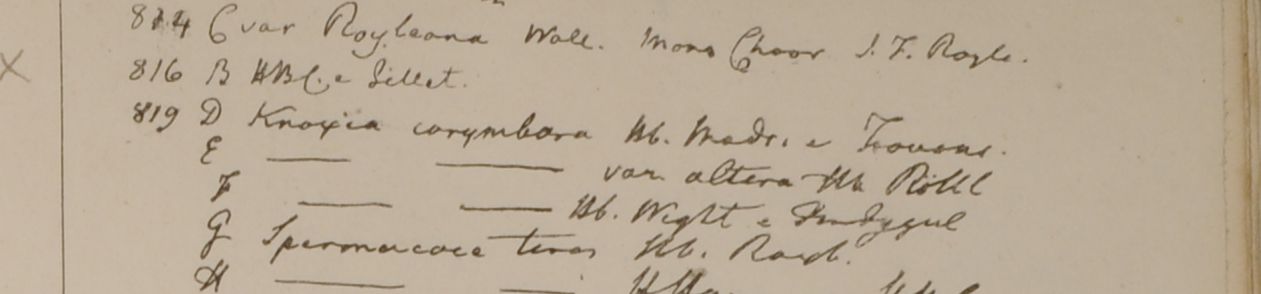 814 C var Royleana Wall. Mons Choor J. F. Royle.
816 B HBC. e Sillet.
819 D Knoxia corymbosa Hb. Madr. e Travanc.
E ——— ——— var altera Hb Röttl
F ——— ——— Hb. Wight e Dindygul
G Spermacoce teres Hb. Roxb.
H ——— ———